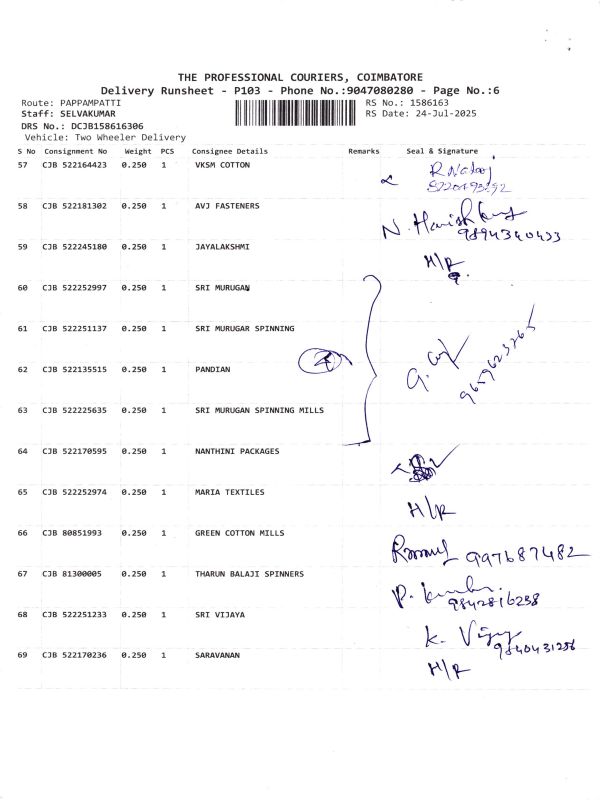 THE PROFESSIONAL COURIERS, COIMBATORE
Delivery Runsheet - P103 - Phone No.:9047080280 - Page No.:6
Route: PAPPAMPATTI RS No.: 1586163
Staff: SELVAKUMAR RS Date: 24-Jul-2025
DRS No.: DCJB158616306
Vehicle: Two Wheeler Delivery
S No Consignment No Weight PCS Consignee Details Remarks Seal & Signature
57 CJB 522164423 0.250 1 VKSM COTTON
58 CJB 522181302 0.250 1 AVJ FASTENERS
9894340433
59 CJB 522245180 0.250 1 JAYALAKSHMI
H/R
60 CJB 522252997 0.250 1 SRI MURUGAN
61 CJB 522251137 0.250 1 SRI MURUGAR SPINNING
62 CJB 522135515 0.250 1 PANDIAN 4
63 CJB 522225635 0.250 1 SRI MURUGAN SPINNING MILLS
64 CJB 522170595 0.250 1 NANTHINI PACKAGES
65 CJB 522252974 0.250 1 MARIA TEXTILES
H/R
66 CJB 80851993 0.250 1 GREEN COTTON MILLS
997687482
67 CJB 81300005 0.250 1 THARUN BALAJI SPINNERS
9842816238
68 CJB 522251233 0.250 1 SRI VIJAYA
K. Vijay
69 CJB 522170236 0.250 1 SARAVANAN
H/R